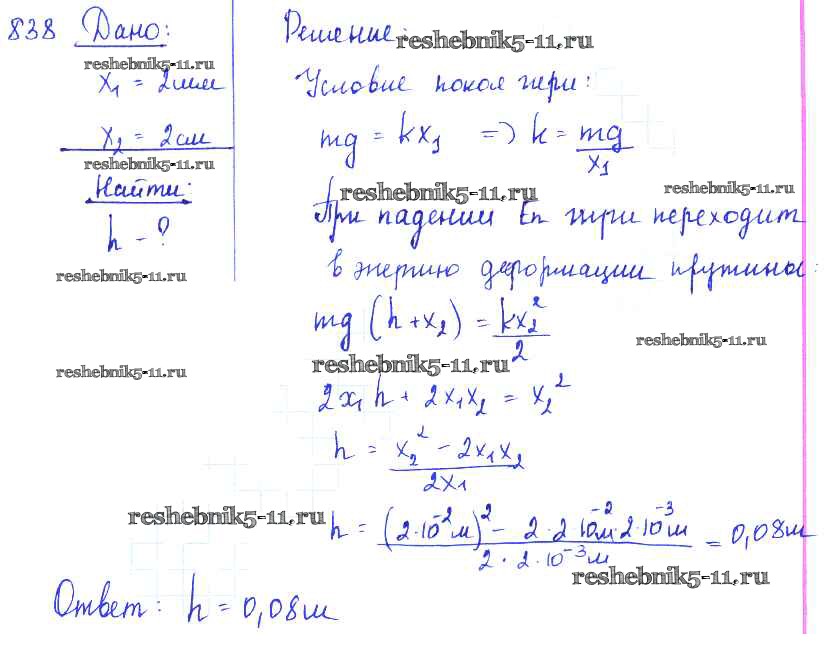 838 Дано:
reshebnik5-11.ru
x₁ = 2мм
x₂ = 2см
reshebnik5-11.ru
Найти:
h - ?
reshebnik5-11.ru
reshebnik5-11.ru
Решение:
reshebnik5-11.ru
Условие покоя гири:
mg = kx₁ => k = mg/x₁
reshebnik5-11.ru
reshebnik5-11.ru
При падении Eп гири переходит
в энергию деформации пружины:
mg (h + x₂) = kx₂²/2
reshebnik5-11.ru
reshebnik5-11.ru
2x₁h + 2x₁x₂ = x₂²
h = x₂² - 2x₁x₂ / 2x₁
reshebnik5-11.ru
h = (2·10⁻²м)² - 2·2 10⁻²м·2·10⁻³м / 2·2·10⁻³м = 0,08м
reshebnik5-11.ru
Ответ: h = 0,08м